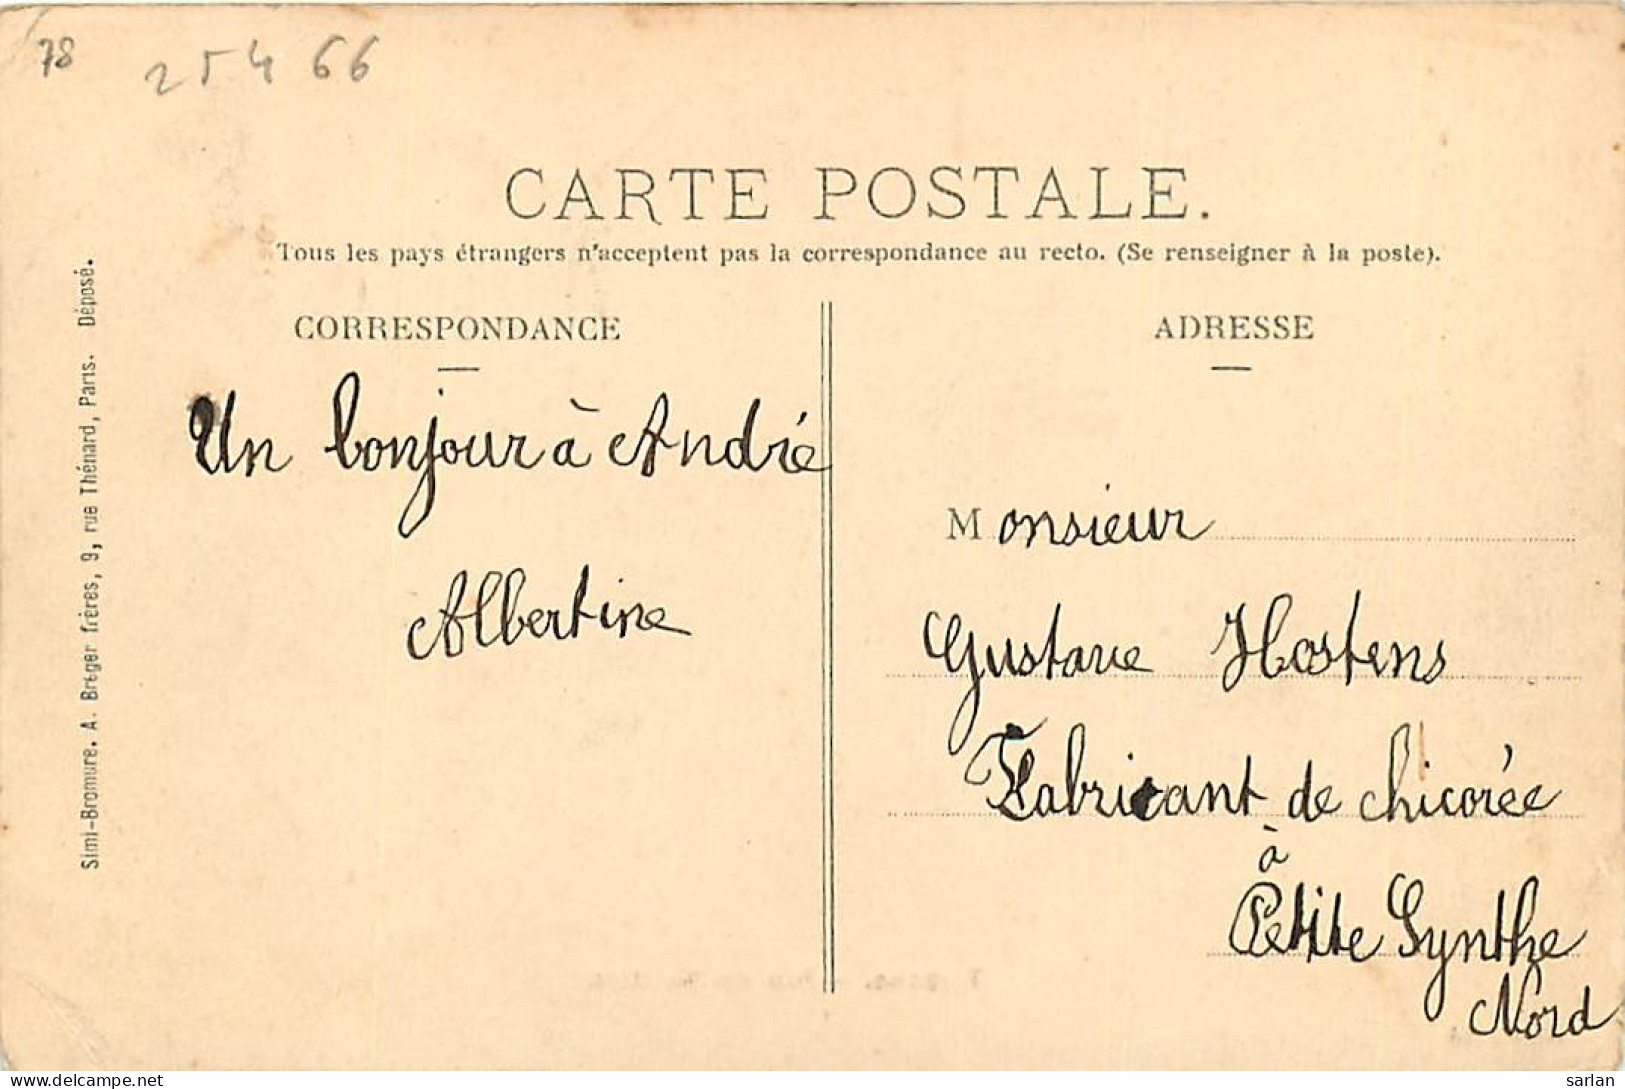 78
25466
CARTE POSTALE.
Tous les pays étrangers n'acceptent pas la correspondance au recto. (Se renseigner à la poste).
CORRESPONDANCE
Un bonjour à André
Albertine
ADRESSE
Monsieur
Gustave Hostens
Fabricant de chicorée
à
Petite Synthe
Nord
Simi-Bromure. A. Breger frères, 9, rue Thénard, Paris. Déposé.
www.delcampe.net
sarlan